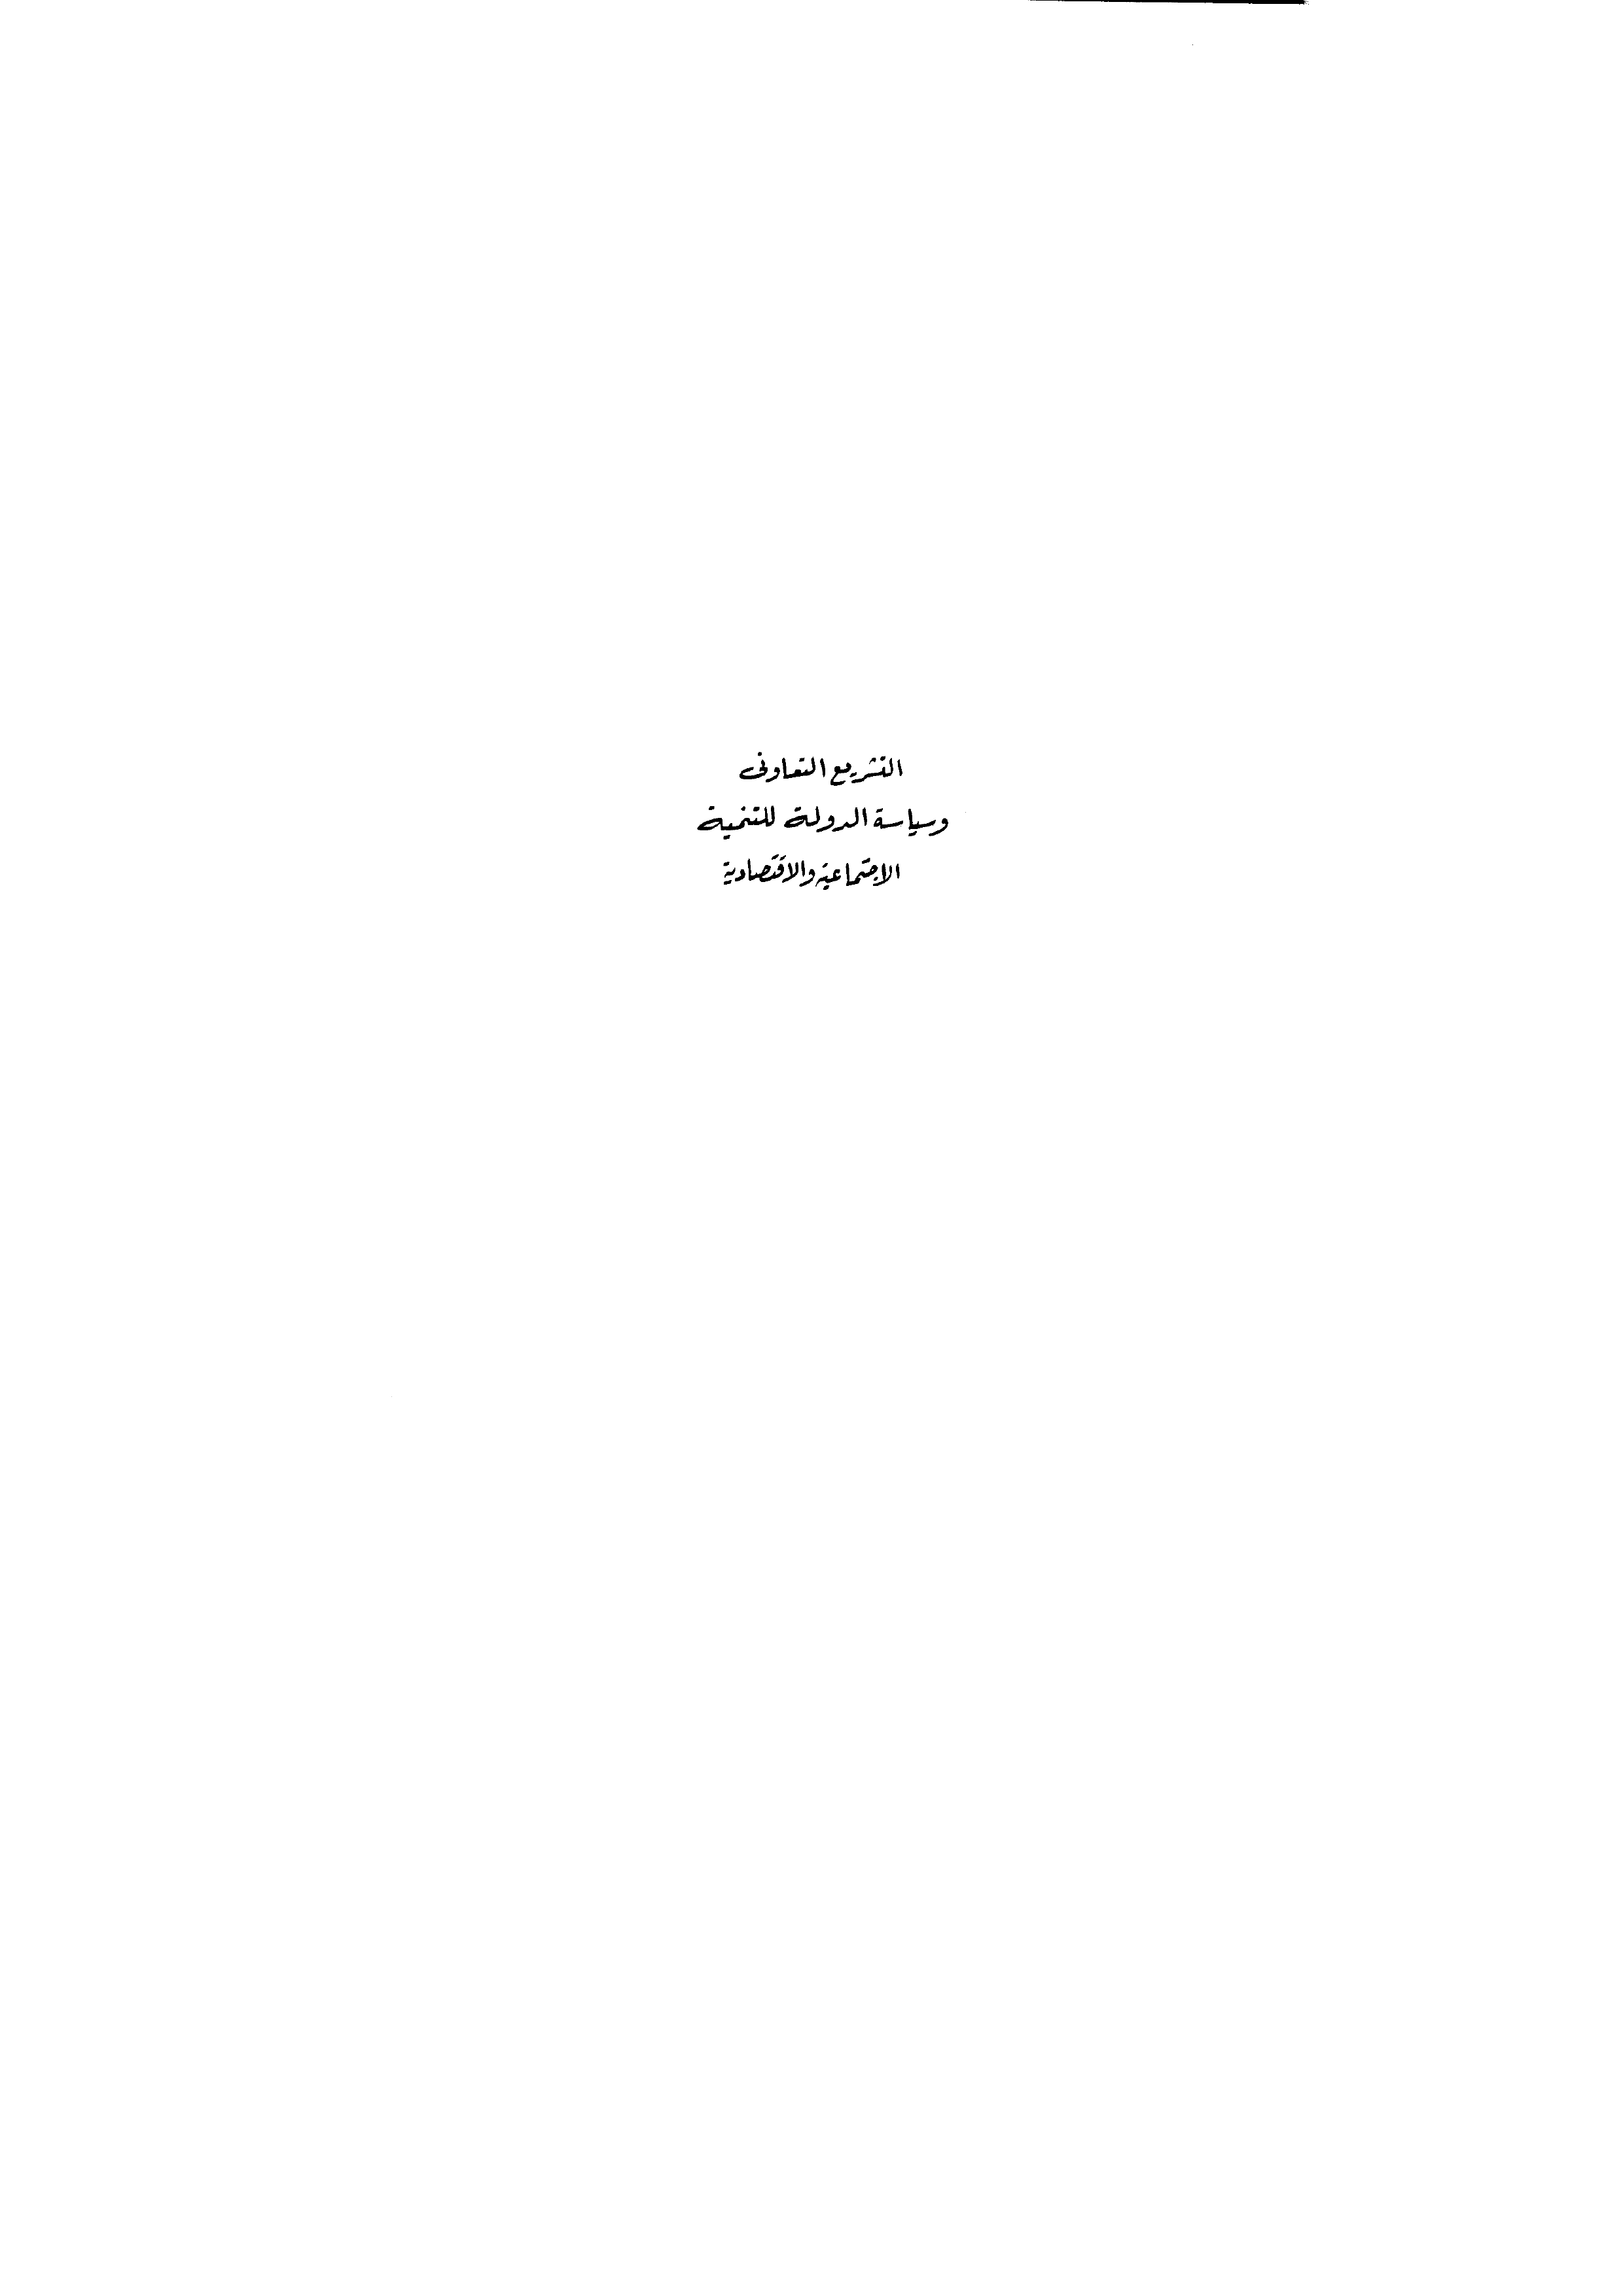 التشريع التعاونى
وسياسة الدولة للتنمية
الاجتماعية والاقتصادية